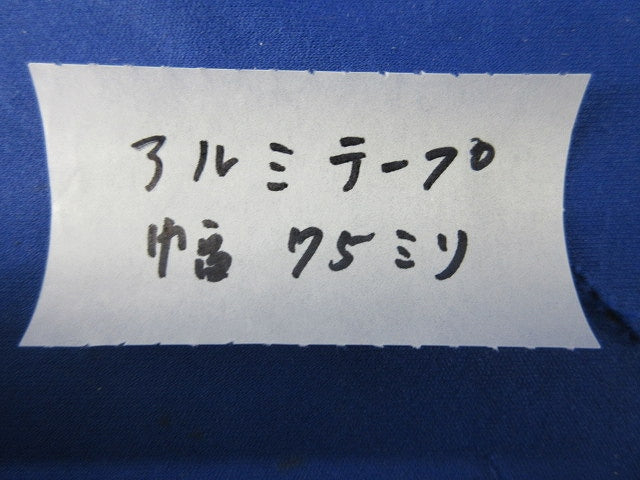 アルミテープ
幅 75ミリ